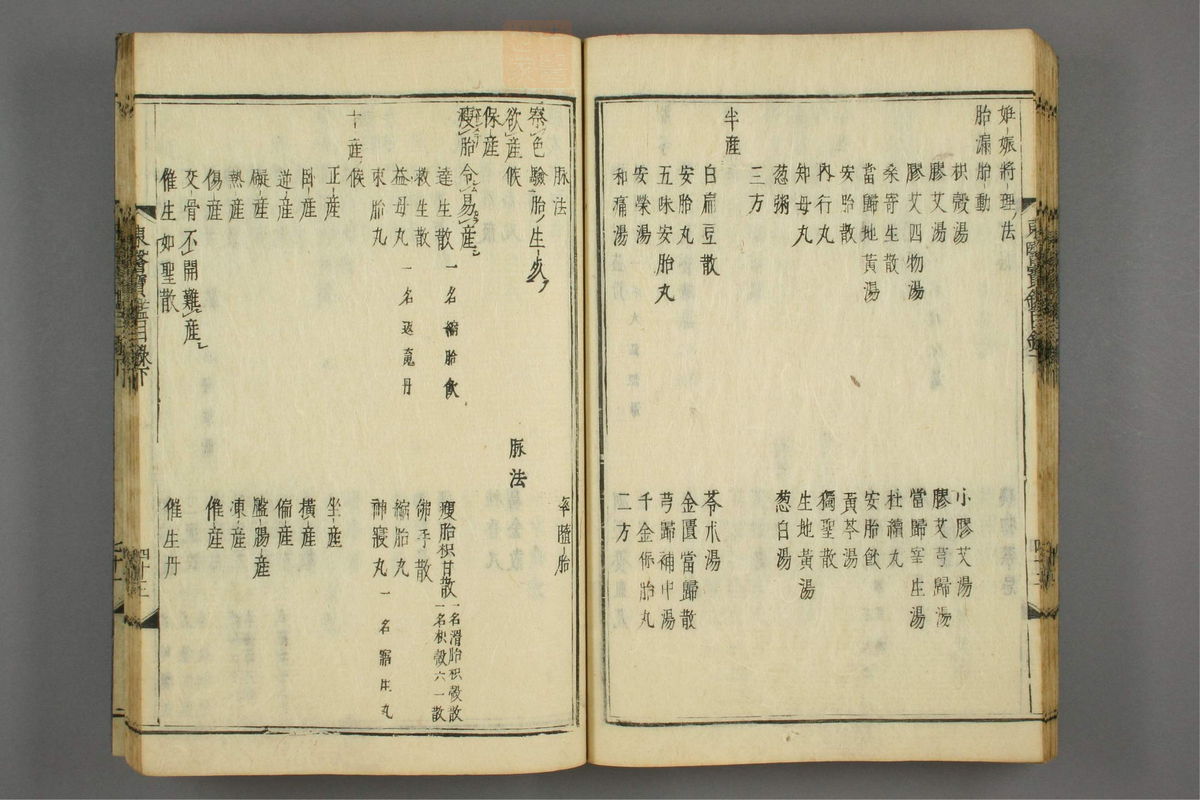 姙娠將理法
胎漏胎動
枳殼湯 小膠艾湯
膠艾湯 膠艾芎歸湯
膠艾四物湯 當歸寄生湯
桑寄生散 杜續丸
當歸地黃湯 安胎飮
安胎散 黃芩湯
內行丸 獨聖散
知母丸 生地黃湯
葱粥 葱白湯
三方
半産
白扁豆散 芩朮湯
安胎丸 金匱當歸散
五味安胎丸 芎歸補中湯
安榮湯 千金保胎丸
和痛湯 二方
脉法 孕墮胎
察色驗胎生死
欲産候 脉法
保産
瘦胎令易産 瘦胎枳甘散 一名滑胎枳殼散 一名枳殼六一散
達生散 一名縮胎飮 佛手散
救生散 縮胎丸
益母丸 一名返魂丹 神寢丸 一名縮生丸
束胎丸
十産候
正産 坐産
臥産 橫産
逆産 偏産
礙産 盤腸産
熱産 凍産
傷産 催産
交骨不開難産
催生如聖散 催生丹
東醫寶鑑目錄下
四十三